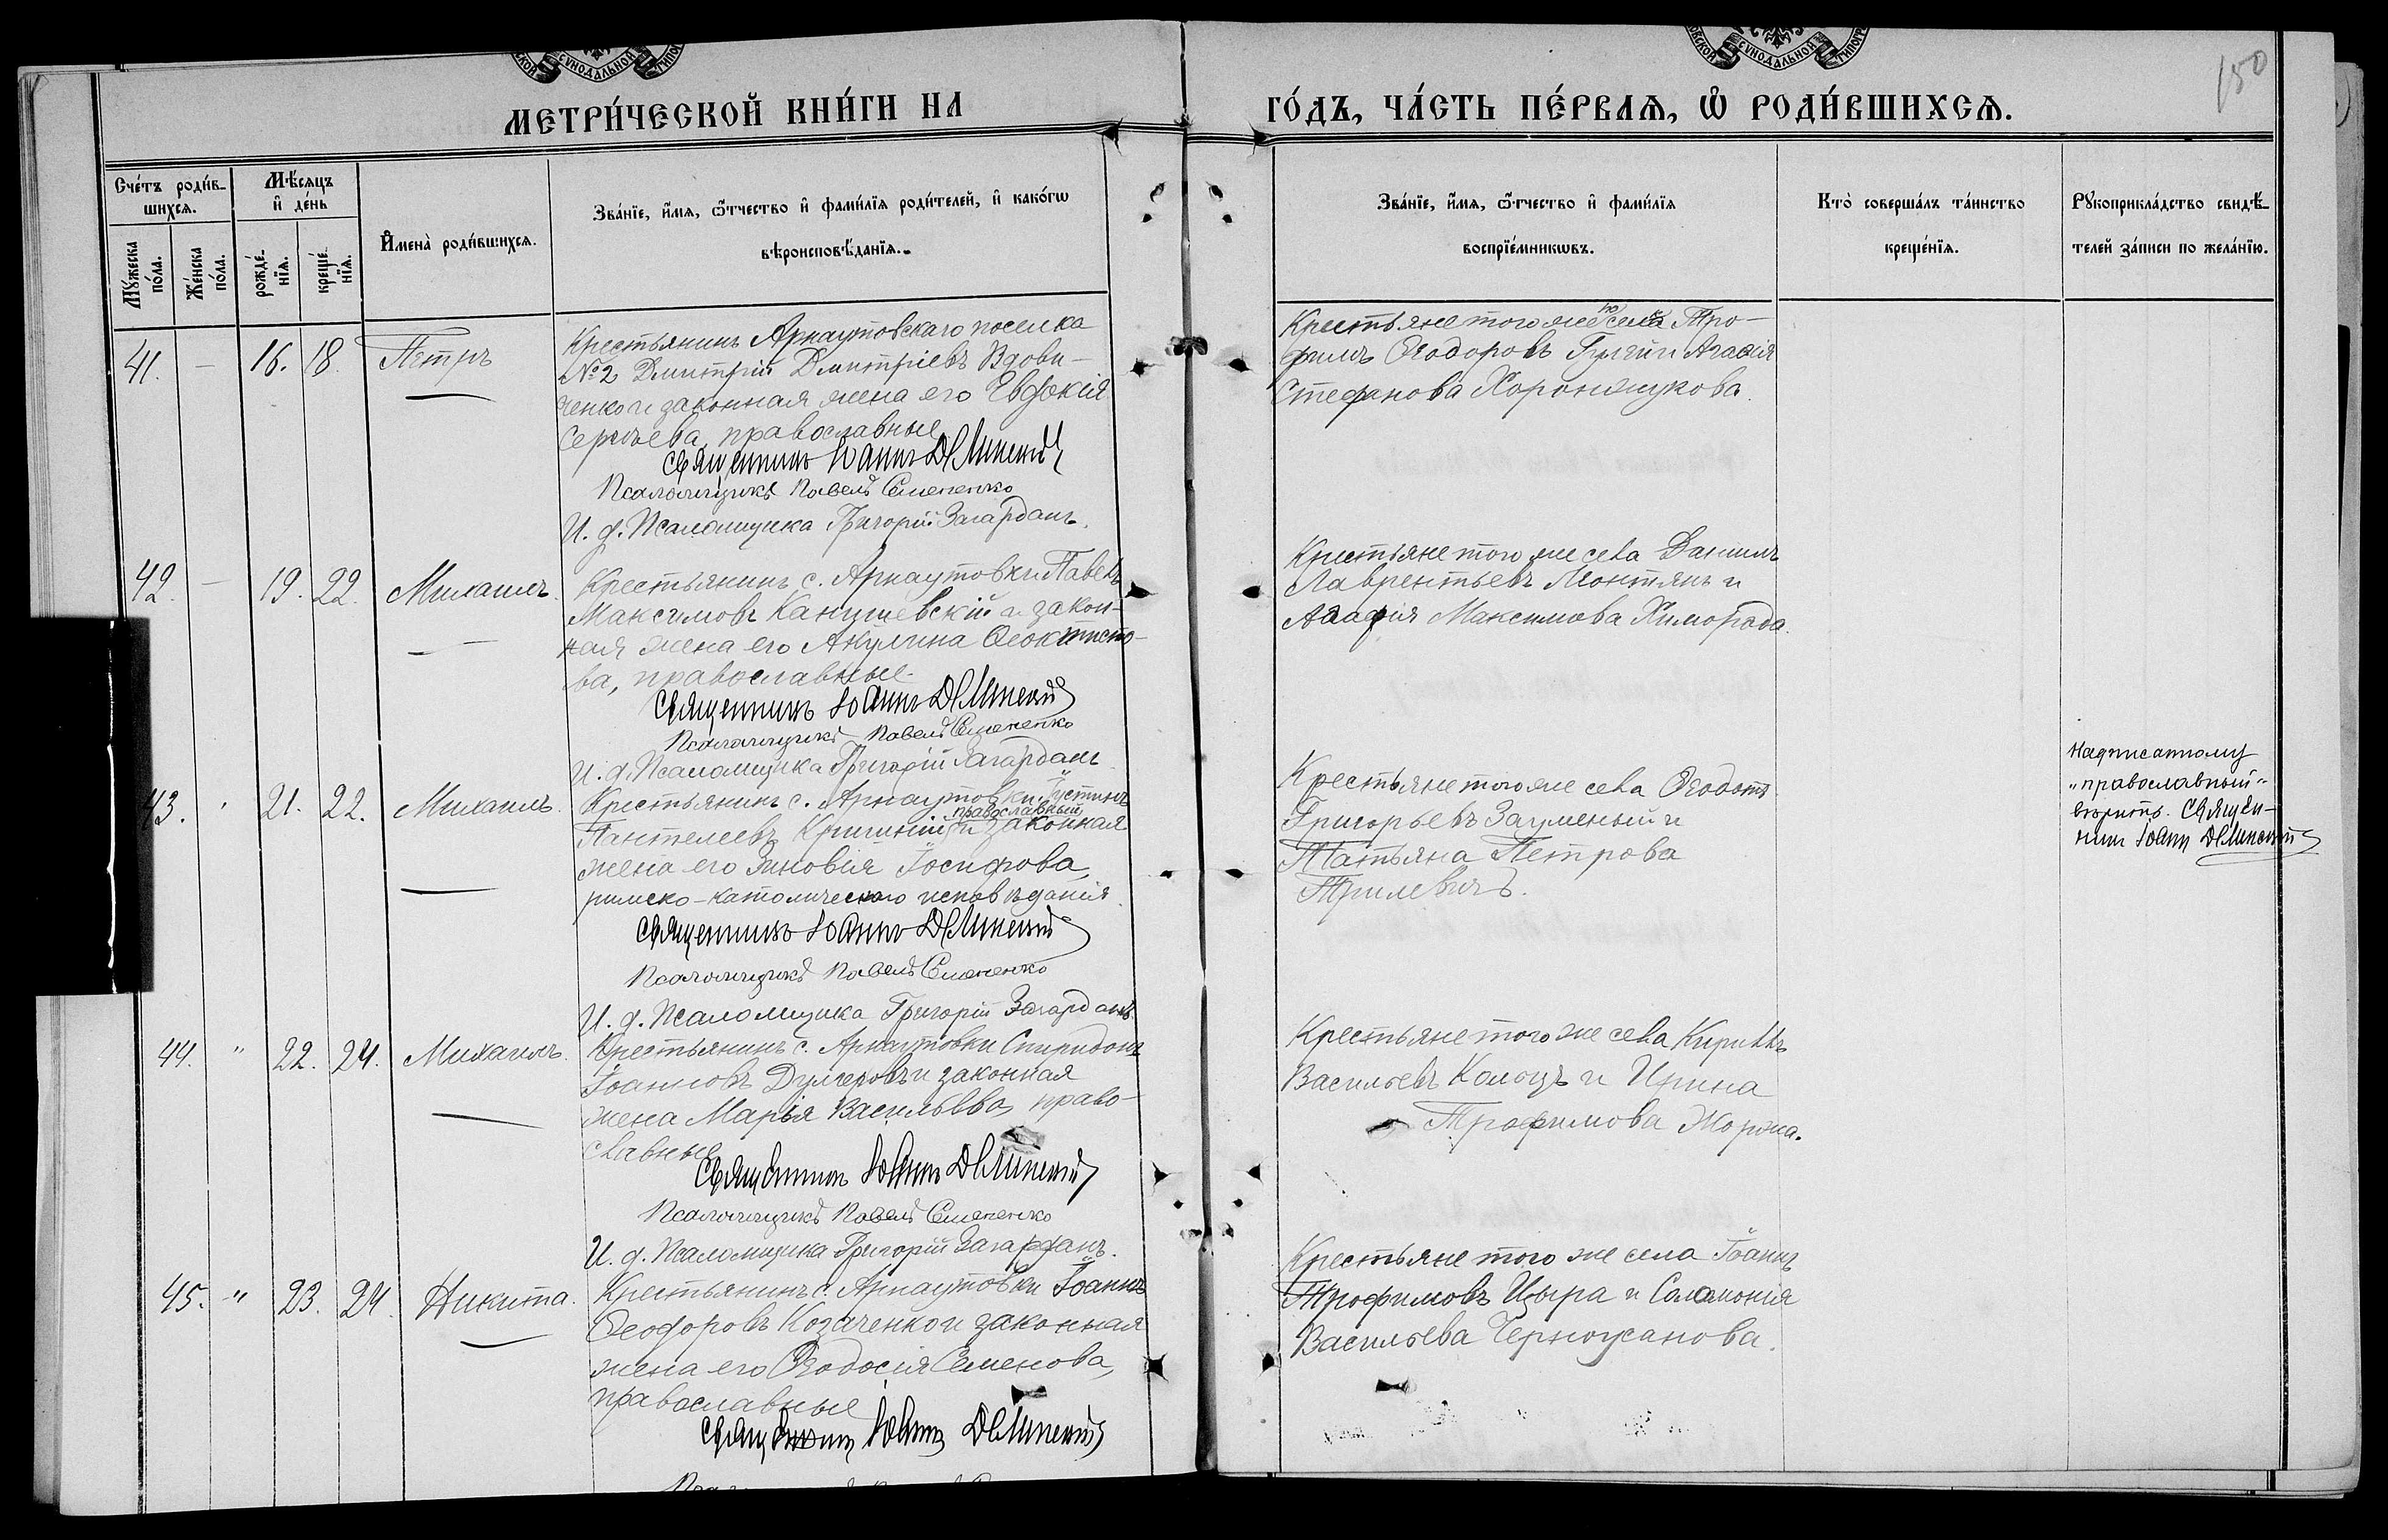 МЕТРИ́ЧЕСКОЙ КНИ́ГИ НА
ГО́ДЪ, ЧА́СТЬ ПЕ́РВАѦ, Ѡ҆ РОДИ́ВШИХСѦ.
150
Сче́тъ роди́в-
шихсѧ.
Мѣ́сѧцъ
и҆ де́нь
Мꙋ́жеска
по́ла.
Же́нска
по́ла.
рожде́-
нїѧ.
креще́-
нїѧ.
И҆мена̀ роди́вшихсѧ.
Зва́нїе, и҆́мѧ, ѻ҆́тчество и҆ фами́лїѧ роди́телей, и҆ како́гѡ
вѣроисповѣ́данїѧ.
Зва́нїе, и҆́мѧ, ѻ҆́тчество и҆ фами́лїѧ
воспрїе́мникѡвъ.
Кто̀ соверша́лъ та́инство
креще́нїѧ.
Рꙋкоприкла́дство свидѣ́-
телей за́писи по жела́нїю.
41. — 16. 18. Петръ
Крестьянинъ Арнаутовскаго поселка
№2 Дмитрій Дмитріевъ Вдови-
ченко и законная жена его Евдокія
Сергѣева, православные
Священникъ Іоаннъ
Псаломщикъ Павелъ Семененко
И. д. Псаломщика Григорій Загарданъ.
Крестьяне того же села Тро-
фимъ Ѳеодоровъ Гуляй и Агафія
Стефанова
42. — 19. 22. Михаилъ.
Крестьянинъ с. Арнаутовки Павелъ
Максимовъ Канушевскій и закон-
ная жена его Акулина Ѳеоктисто-
ва, православные.
Священникъ Іоаннъ
Псаломщикъ Павелъ Семененко
И. д. Псаломщика Григорій Загарданъ
Крестьяне того же села Даніилъ
Лаврентьевъ Леонтянъ и
Агафія Максимова Химорода.
43. " 21. 22. Михаилъ.
Крестьянинъ с. Арнаутовки Іустинъ
православный
Пантелеевъ и законная
жена его Зиновія Іосифова,
римско-католическаго исповѣданія.
Священникъ Іоаннъ
Псаломщикъ Павелъ Семененко
И. д. Псаломщика Григорій Загарданъ.
Крестьяне того же села Ѳеодотъ
Григорьевъ Зауменый и
Татьяна Петрова
Трилевичъ.
Надписанному
„православный"
вѣрить. Священ-
никъ Іоаннъ
44. " 22. 24. Михаилъ.
Крестьянинъ с. Арнаутовки Спиридонъ
Іоанновъ Дулгеровъ и законная
жена Марія Васильева, право-
славные
Священникъ Іоаннъ
Псаломщикъ Павелъ Семененко
И. д. Псаломщика Григорій Загарданъ.
Крестьяне того же села Кириллъ
Васильевъ и Ирина
Трофимова
45. " 23. 24. Никита.
Крестьянинъ с. Арнаутовки Іоаннъ
Ѳеодоровъ Козаченко и законная
жена его Ѳеодосія Семенова,
православные
Священникъ Іоаннъ
Крестьяне того же села Іоаннъ
Трофимовъ Цыра и Саломонія
Васильева